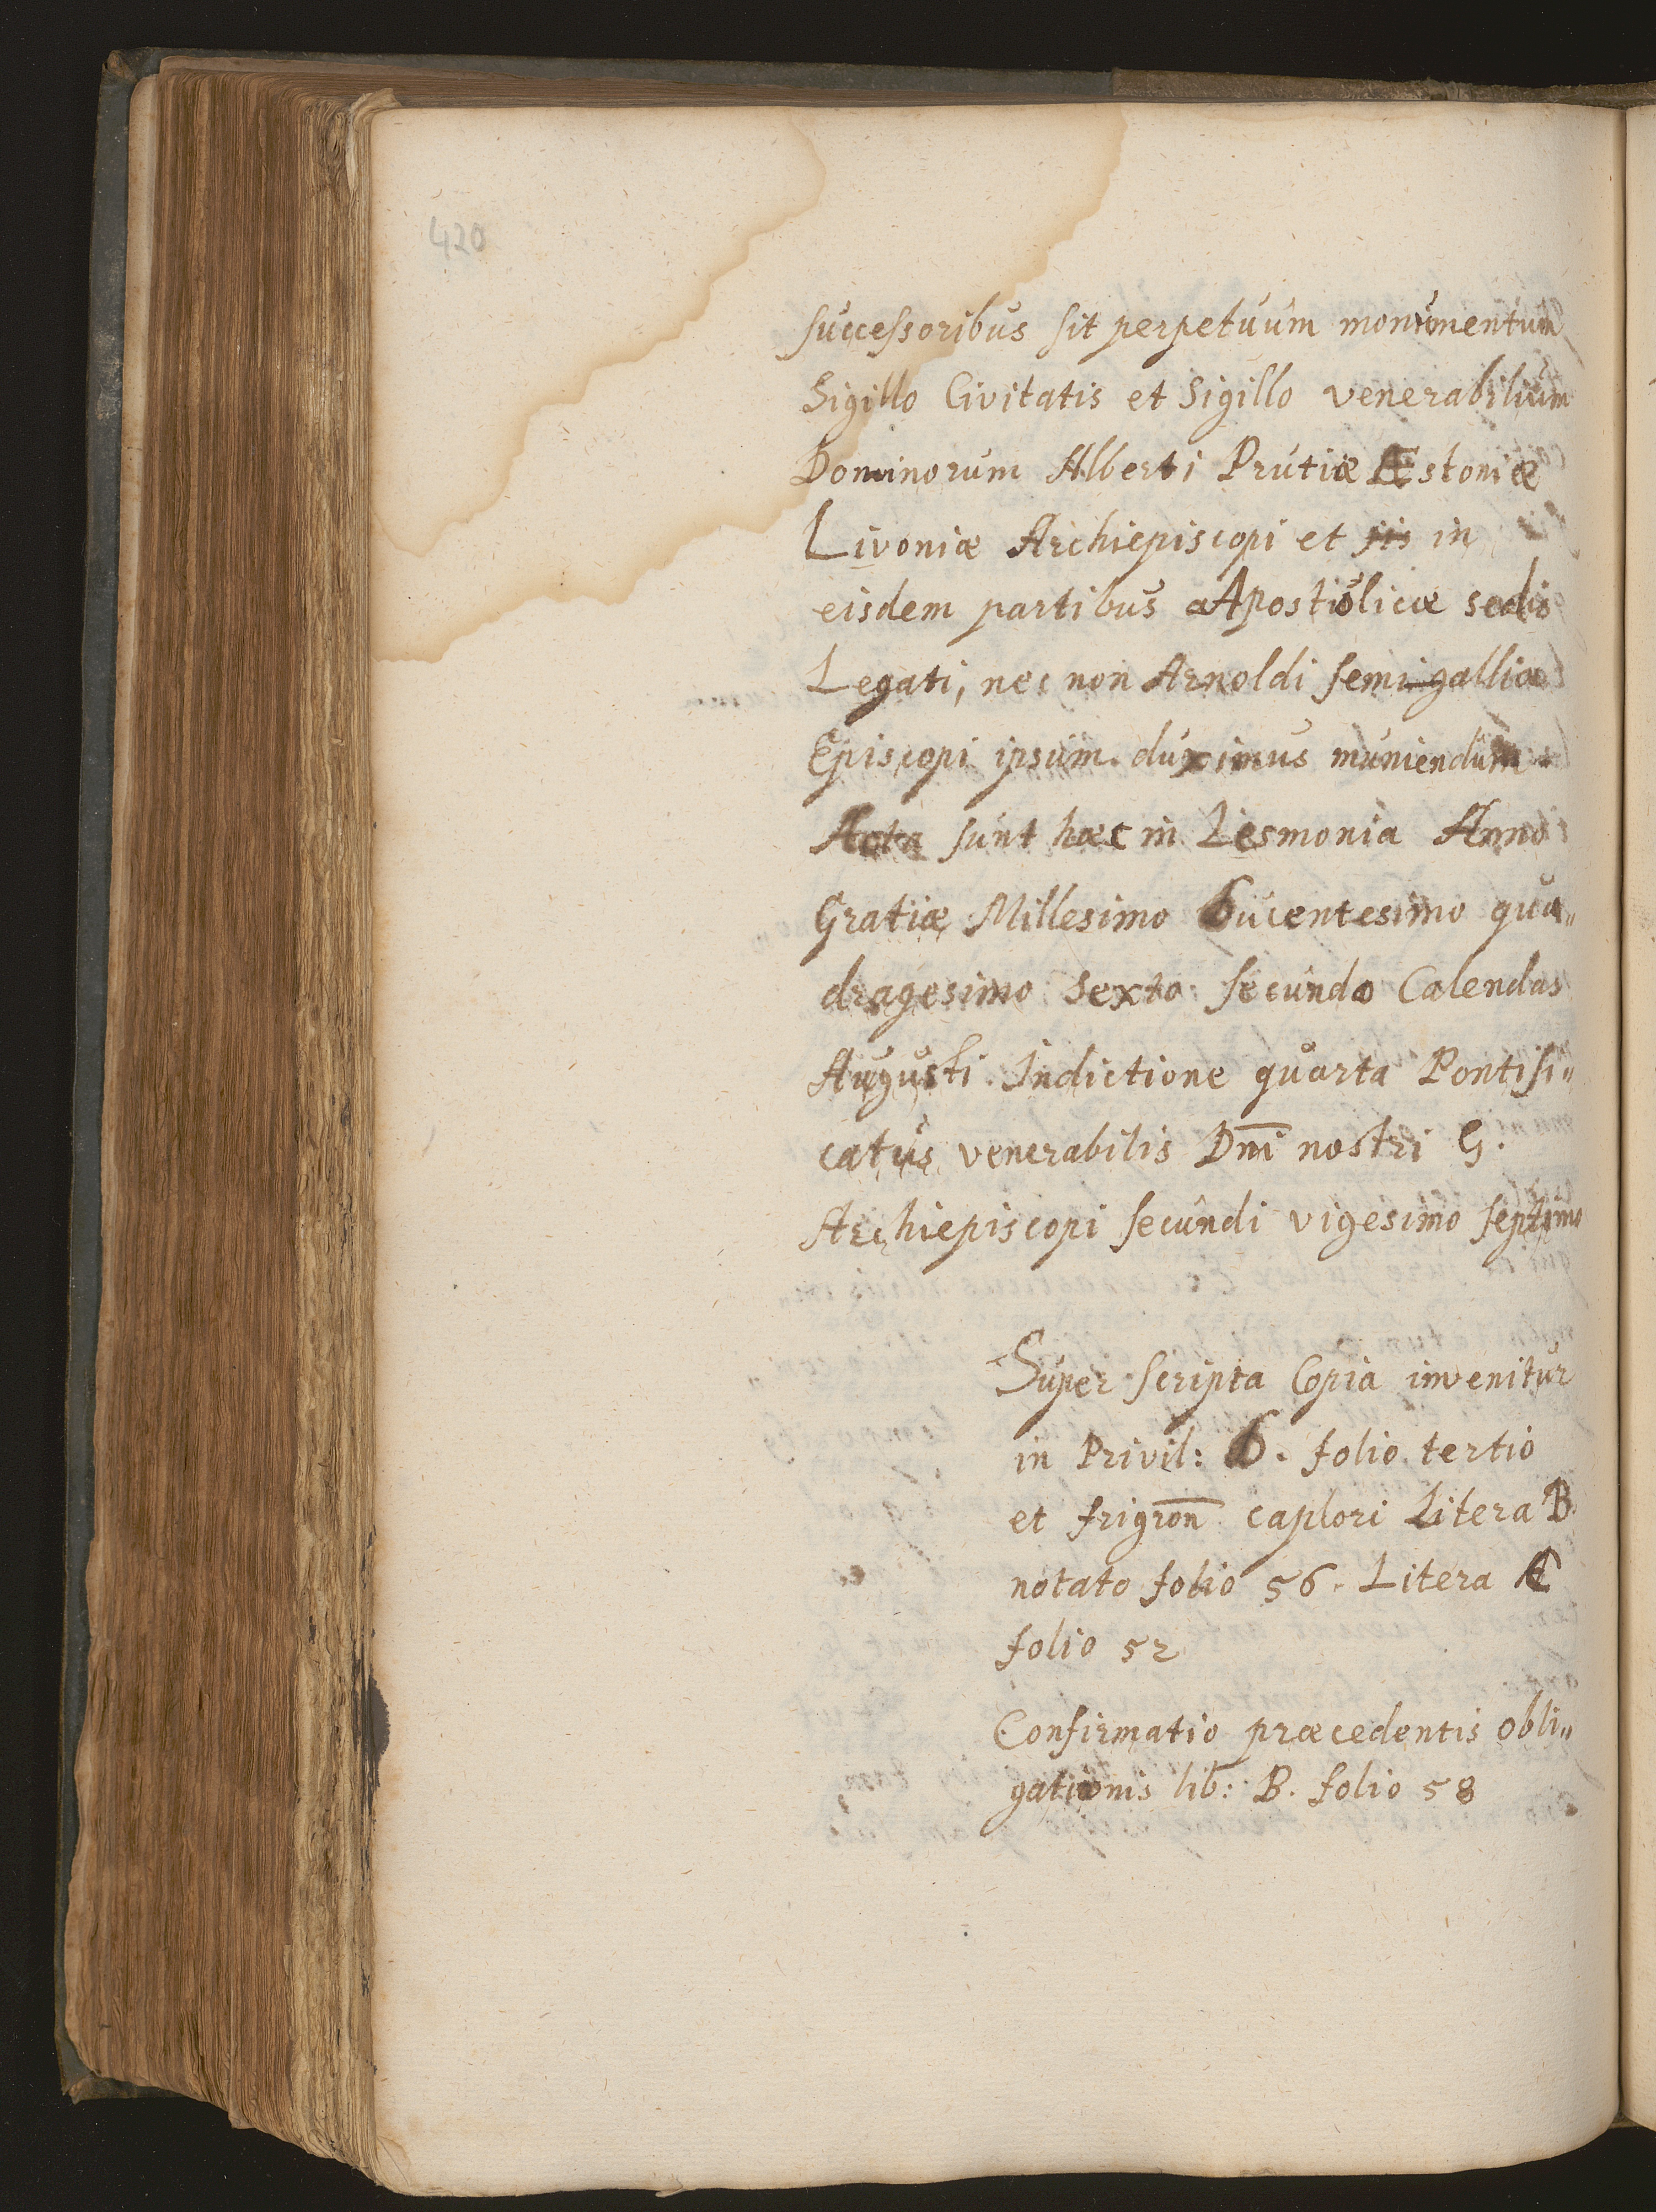 420
successoribus sit perpetuum monumentum
Sigillo Civitatis et Sigillo venerabilium
Dominorum Alberti Prutiæ Æstoniæ
Livoniæ Archiepiscopi et in
eisdem partibus Apostolicæ sedis
Legati, nec non Arnoldi semigalliæ
Episcopi ipsum duximus muniendum.
Acta sunt hæc in Lesmonia Anno
Gratiæ Millesimo Ducentesimo qua„
dragesimo Sexto secundo Calendas
Augusti Indictione quarta Pontifi„
catus venerabilis Dni nostri G.
Archiepiscopi secundi vigesimo septimo
Super scripta Copia invenitur
in Privil: folio tertio
et Litera B.
notato folio 56. Litera
folio 52
Confirmatio præcedentis obli„
gationis lib: B. folio 58